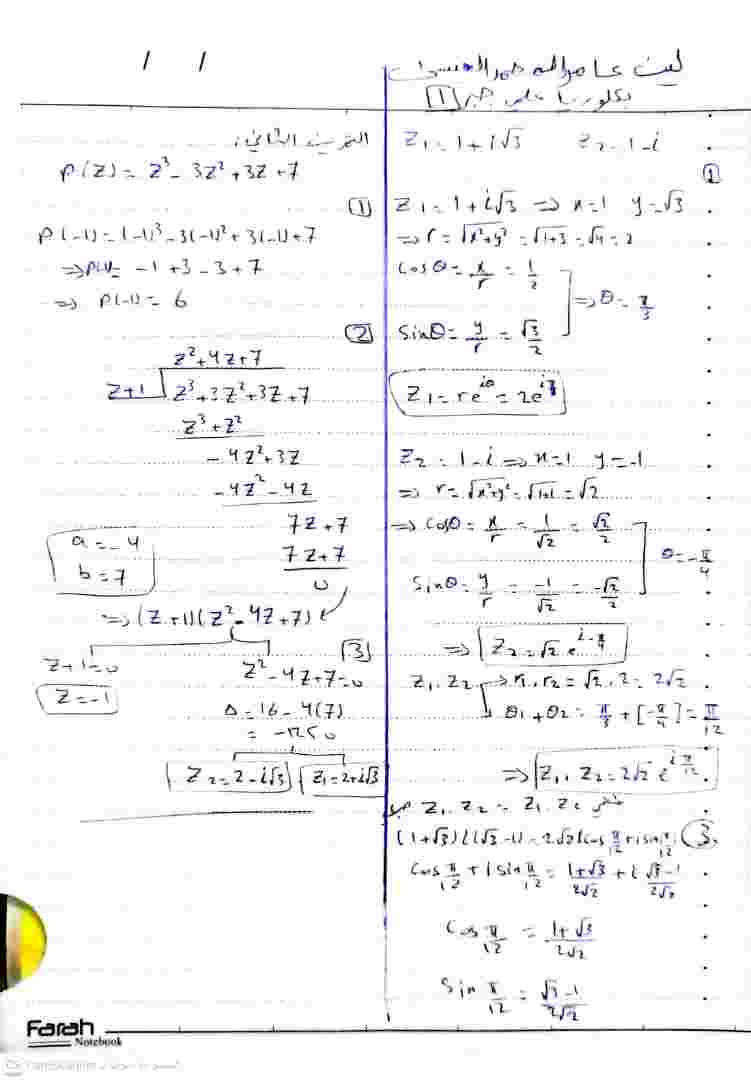 بكلوريا علمي جبر [1]
Z₁ = 1 + i√3    Z₂ = 1 - i
①
Z₁ = 1 + i√3 ⇒ x = 1   y = √3
⇒ r = √x²+y² = √1+3 = √4 = 2
cos θ = x/r = 1/2
⇒ θ = π/3
sin θ = y/r = √3/2
Z₁ = r e^iθ = 2e^iπ/3
Z₂ = 1 - i ⇒ x = 1   y = -1
⇒ r = √x²+y² = √1+1 = √2
⇒ cos θ = x/r = 1/√2 = √2/2
θ = -π/4
sin θ = y/r = -1/√2 = -√2/2
⇒ Z₂ = √2 e^i-π/4
Z₁ . Z₂ → r₁ . r₂ = √2 . 2 = 2√2
→ θ₁ + θ₂ = π/3 + [-π/4] = π/12
⇒ Z₁ . Z₂ = 2√2 e^iπ/12
Z₁ . Z₂ = Z₁ . Z₂
③
(1+√3)(i√3-1) = 2√2(cos π/12 + i sin π/12)
cos π/12 + i sin π/12 = 1+√3/2√2 + i √3-1/2√2
cos π/12 = 1+√3/2√2
sin π/12 = √3-1/2√2
/ /
التمرين الثاني:
P(Z) = Z³ - 3Z² + 3Z + 7
[1]
P(-1) = (-1)³ - 3(-1)² + 3(-1) + 7
⇒ P(-1) = -1 + 3 - 3 + 7
⇒ P(-1) = 6
[2]
Z² + 4Z + 7
Z+1   Z³ + 3Z² + 3Z + 7
Z³ + Z²
- 4Z² + 3Z
- 4Z² - 4Z
7Z + 7
7Z + 7
0
a = -4
b = 7
⇒ (Z+1)(Z² - 4Z + 7)
[3]
Z + 1 = 0   Z² - 4Z + 7 = 0
Z = -1
Δ = 16 - 4(7)
= -12 < 0
Z₂ = 2 - i√3   Z₁ = 2 + i√3
Farah
Notebook